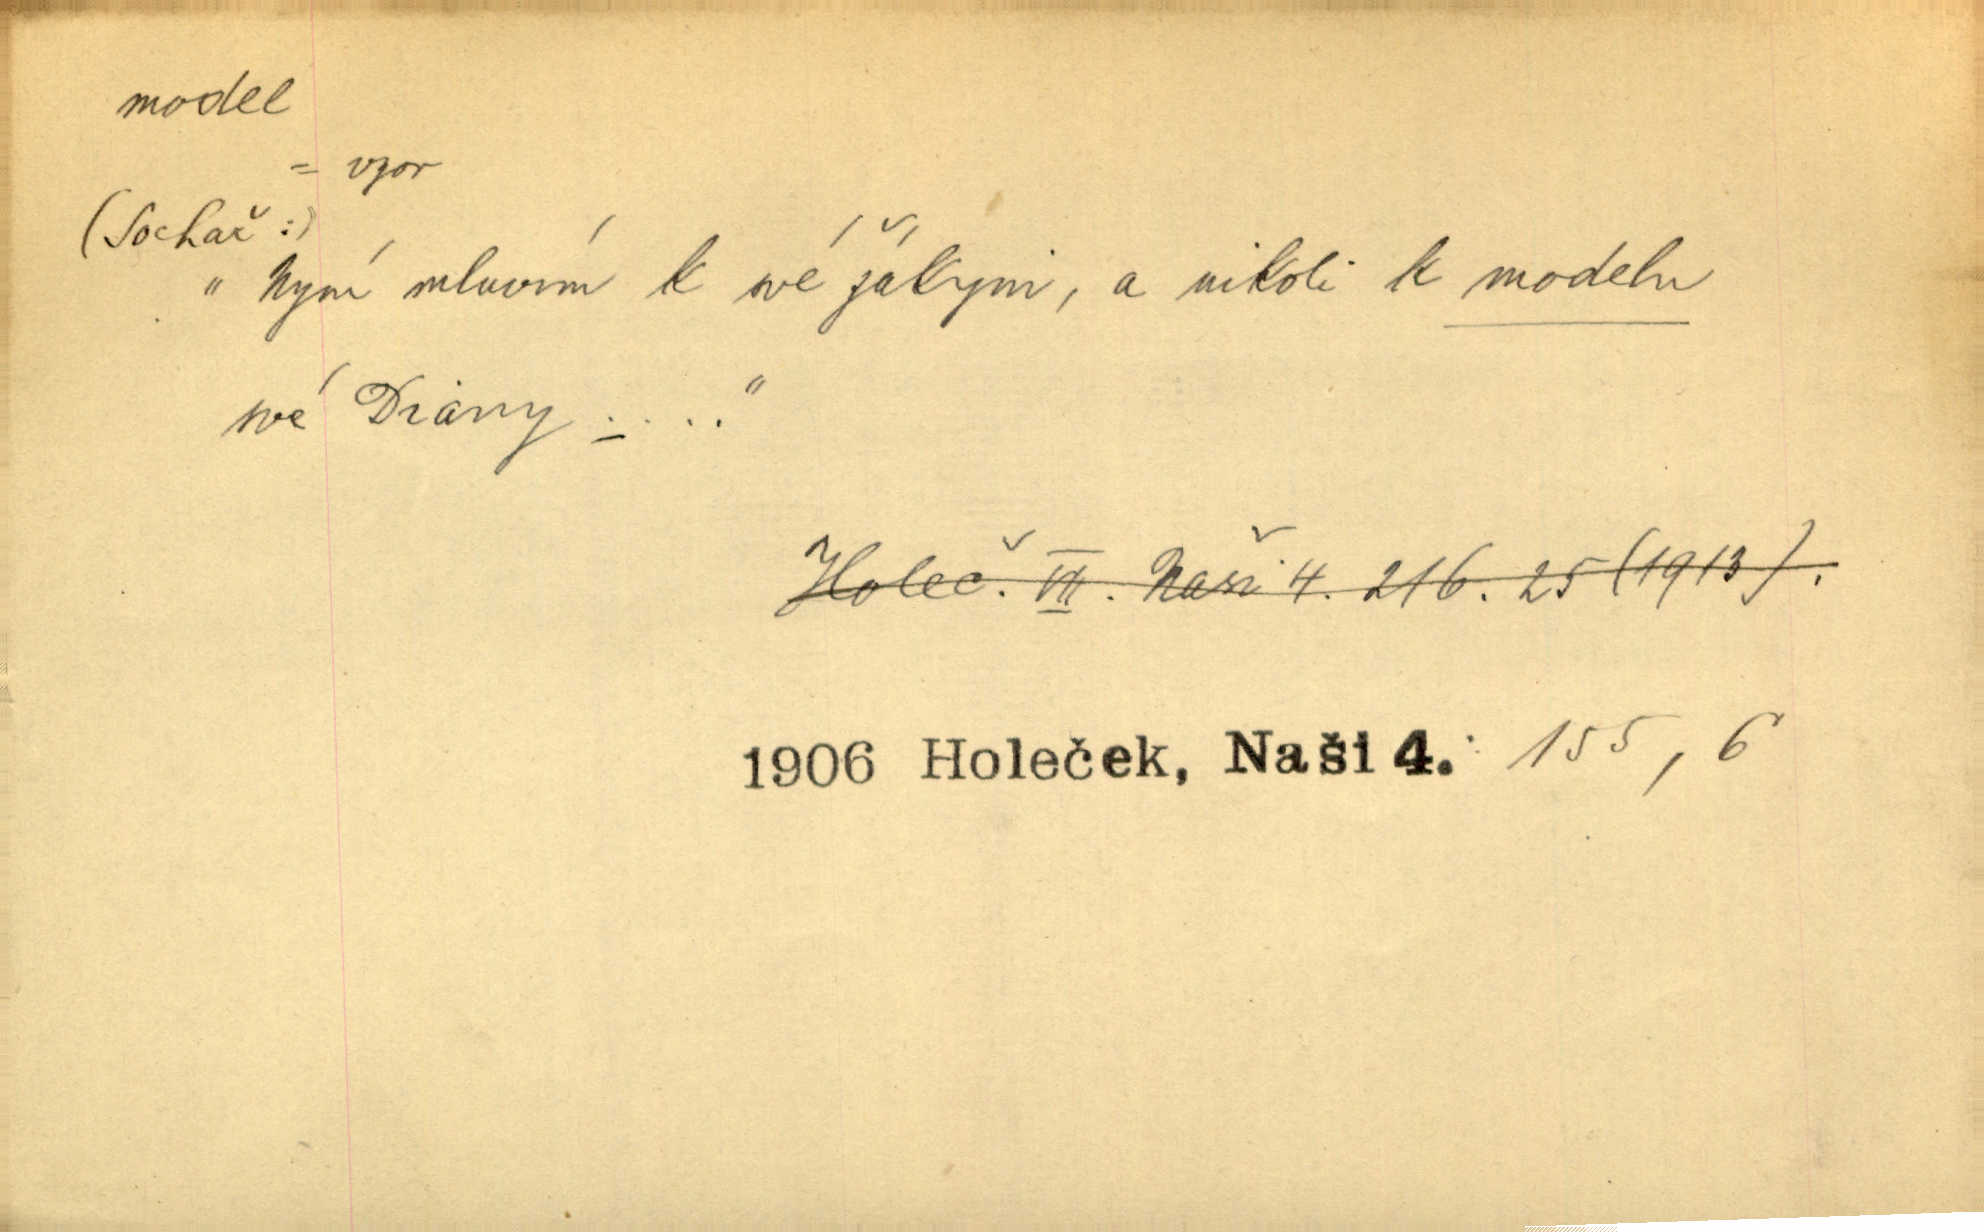 model
= vzor
(Sochař:)
"Nyní mluvím k své žákyni, a nikoli k modelu
své Diány ...."
Holeč. VII. Naši 4. 216. 25 (1913).
1906 Holeček, Naši 4. 155, 6